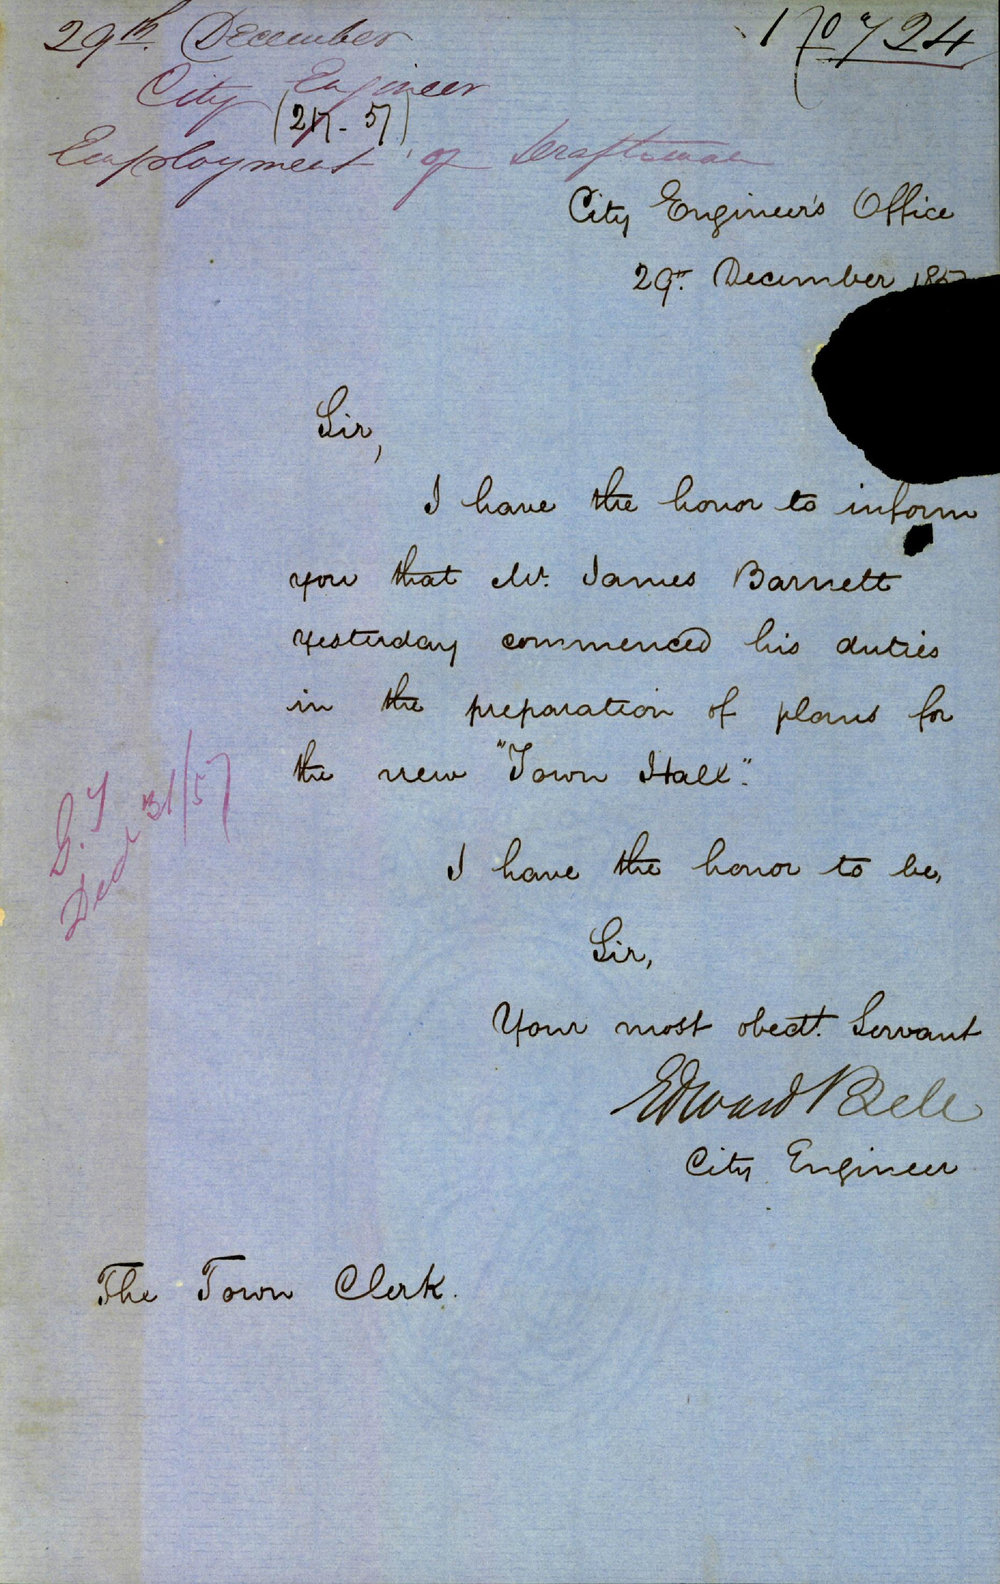 29th. December
City Engineer
(217-57)
Employment of Draftsman
City Engineer's Office
29th. December 185
Sir,
I have the honor to inform
you that Mr. James Barnett
yesterday commenced his duties
in the preparation of plans for
the new "Town Hall".
I have the honor to be,
Sir,
Your most obedt. Servant
Edward Bell
City Engineer
The Town Clerk.
Decr 31/57